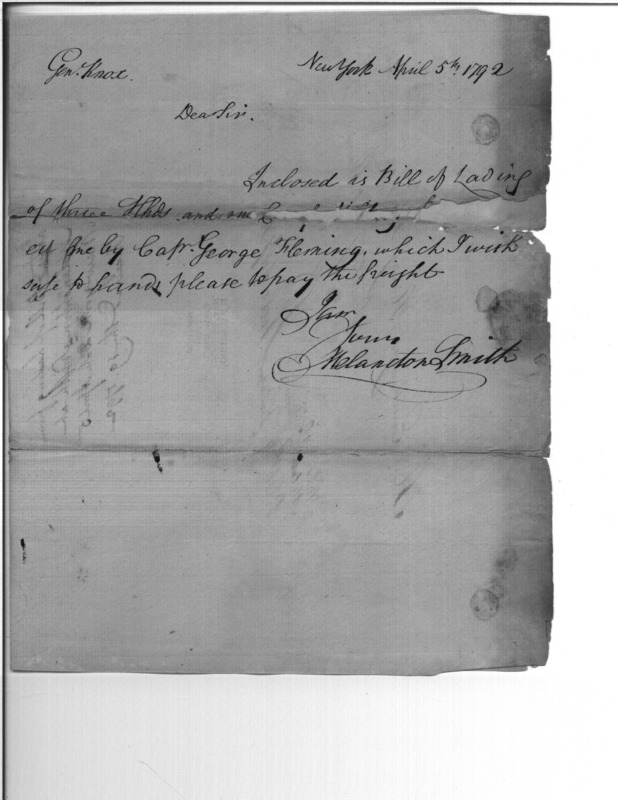 Genl. Knox
New York April 5th. 1792
Dear Sir.
Inclosed is Bill of Lading
of three Hhds and one
ed me by Capt. George Fleming, which I wish
safe to hand, please to pay the freight
I am
Yours
Melancton Smith